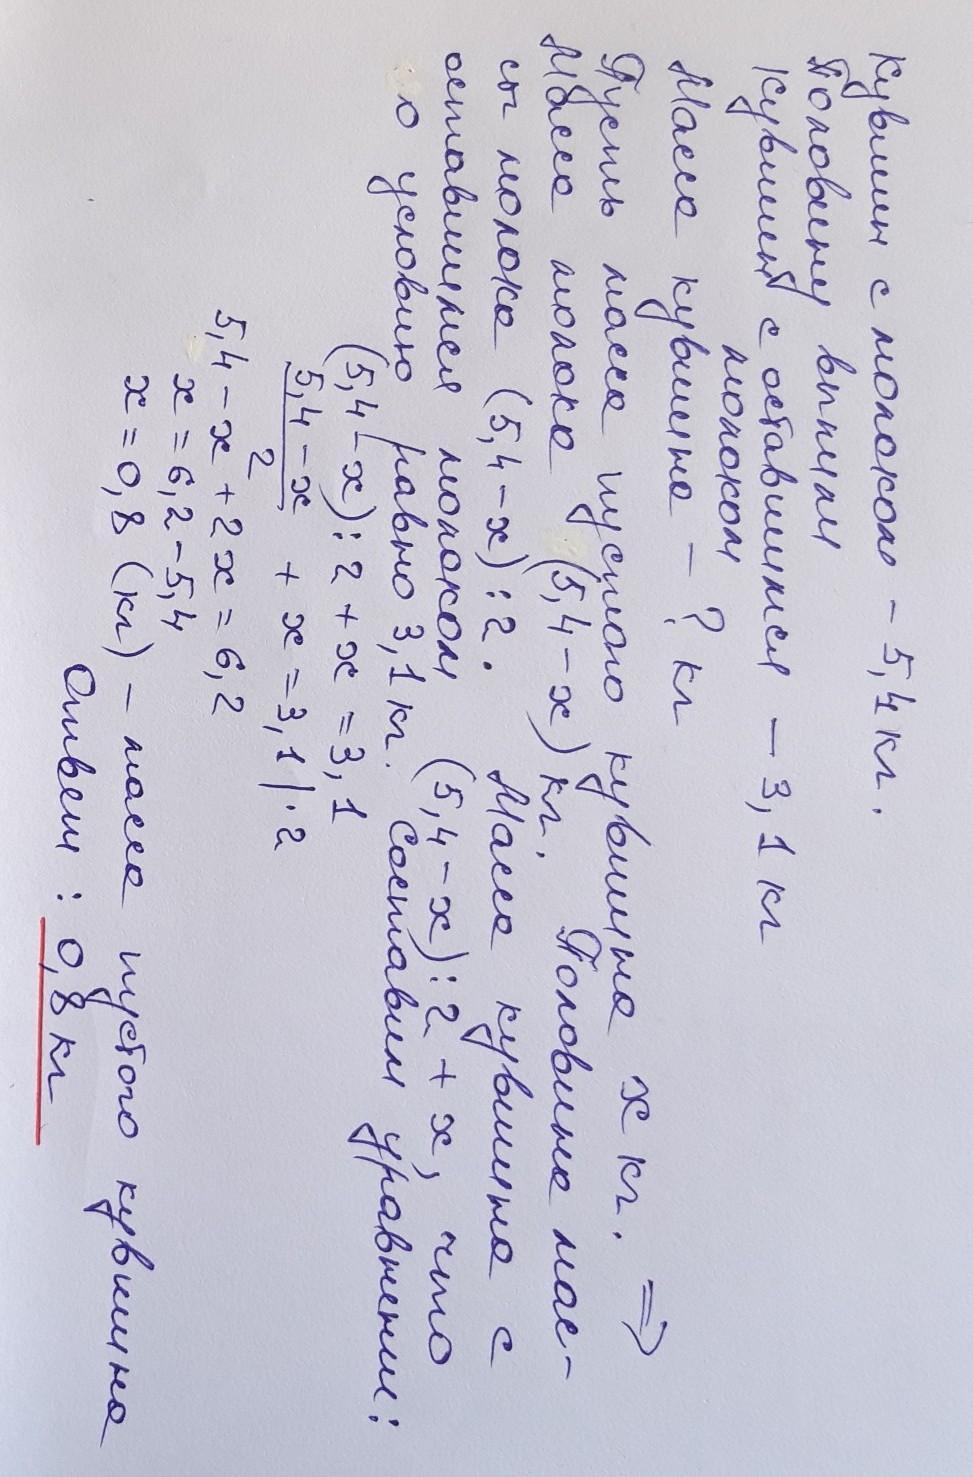 Кувшин с молоком – 5,4 кг.
Половину выпили
Кувшин с оставшимся – 3,1 кг
молоком
Масса кувшина – ? кг
Пусть масса пустого кувшина x кг. ⇒
Масса молока (5,4 – x) кг. Половина мас-
сы молока (5,4 – x) : 2. Масса кувшина с
оставшимся молоком (5,4 – x) : 2 + x, что
по условию равно 3,1 кг. Составим уравнение:
(5,4 – x) : 2 + x = 3,1
(5,4 – x)/2 + x = 3,1 | · 2
5,4 – x + 2x = 6,2
x = 6,2 – 5,4
x = 0,8 (кг) – масса пустого кувшина
Ответ : 0,8 кг